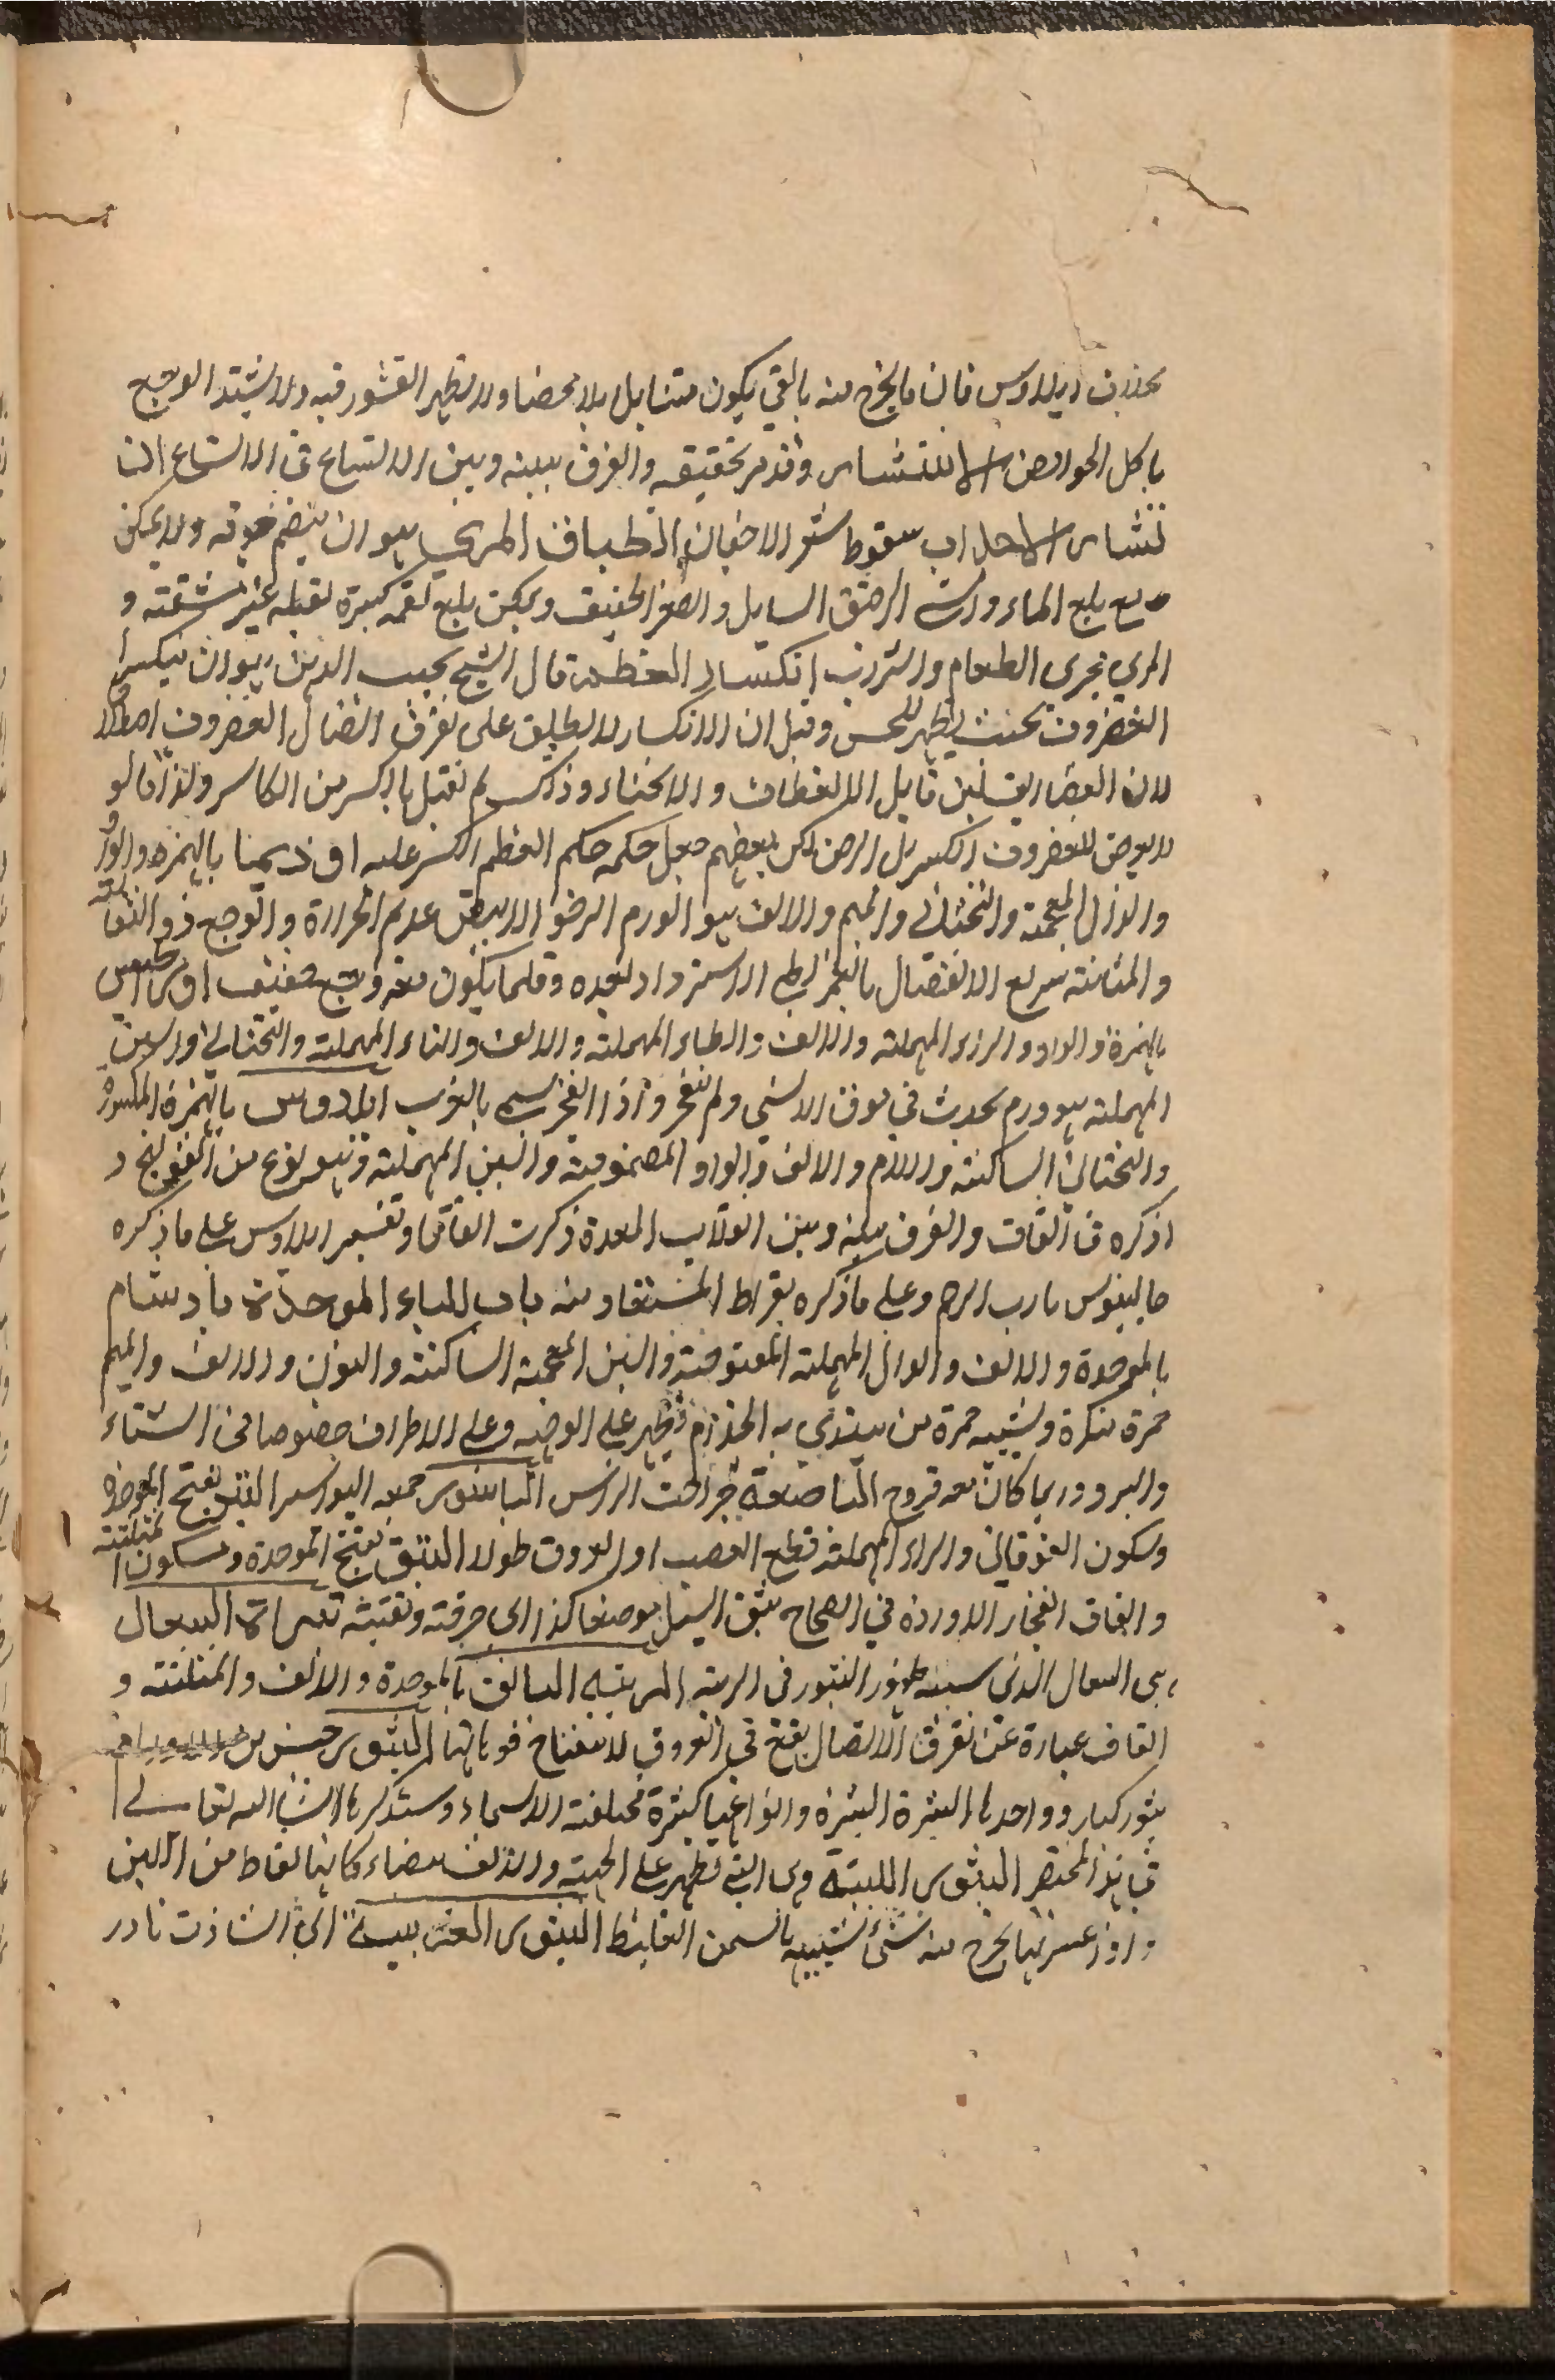 بخلاف ايلاوس فان ما يخرج منه بالقي يكون متنابل بلا محضا ولا تظهر القشور فيه ولا يشتد الوجع
باكل الحوامض الانتشار وقد مر تحقيقه والفرق بينه وبين الاتساع في الاتساع
انتشار الاهداب سقوط شعر الاجفان انطباق المري هو ان ينضم فوقه ولا يمكن
مع بلع الماء والشي الرقيق السايل والصغير الخفيف ويمكن بلع لقمة كبيرة ثقيلة بغير مشقة و
المري مجرى الطعام والشراب انكسار العظم قال الشيخ نجيب الدين هو ان ينكسر
الغضروف بحيث يظهر للحس وقيل ان الانكسار لا يطلق على تفرق اتصال الغضروف اصطلاحا
لان الغضاريف لين قابل للانعطاف والانحناء وذلك لم تقبل بالكسر من الكاسر ولذا قالوا
لا يعرض للغضروف الكسر بل الرض لكن بعضهم جعل حكمه حكم العظم الكسر عليه اوذيما بالهمزة والواو
والذال المعجمة والتحتاني والميم والالف هو الورم الرخو الابيض عديم الحرارة والوجع ذو
والمثانة سريع الانفصال بالغمز بطي الاسترداد لعده وقلما يكون معه وجع خفيف
بالهمزة والواو والراء المهملة والالف والطاء المهملة والالف والياء المهملة والتحتاني والسين
المهملة هو ورم يحدث في موق الانسي ولم ينفجر واذا انفجر سمي بالغرب ايلاوس بالهمزة المكسورة
والتحتاني الساكنة واللام والالف والواو المضمومة والسين المهملة وهو نوع من القولنج و
اذكره في القاف والفرق بينه وبين انقلاب المعدة ذكرت انفا وتفسير ايلاوس على ما ذكره
جالينوس يا رب ارحم وعلى ما ذكره بقراط المستعاذ منه باب الباء الموحدة بادشنام
بالموحدة والالف والدال المهملة المفتوحة والشين المعجمة الساكنة والنون والالف والميم
حمرة منكرة وتشبه حمرة من يبتدي به الجذام وتظهر على الوجه وعلى الاطراف خصوصا في الشتاء
والبرد وربما كان معه قروح الباضعة جراحت الراس الباسور جمعه البواسير البتر بفتح الموحدة
وسكون الفوقاني والراء المهملة قطع العصب او العروق طولا البثق بفتح الموحدة وسكون المثلثة
والقاف انفجار الاوردة في الصحاح بثق السيل موضع كذا اي خرقه وبثقه السعال
هي السعال الذي سببه ظهور البثور في الرية البثق بالموحدة والالف والمثلثة و
القاف عبارة عن تفرق الاتصال يقع في العروق لانفتاح فوهاتها البثور جنس من
بثور كبار وواحدها البثرة البثرة وانواعها كثيرة مختلفة الاسماء وستذكر ها انشا الله تعالى
في هذا المختصر البثور اللبنية هي التي تظهر على الجبهة والانف بيضاء كانها نقاط من اللبن
واذا عصر بها يخرج منه شي شبيه بالسمن الغليظ البثور الغريبة اي الشاذة نادر